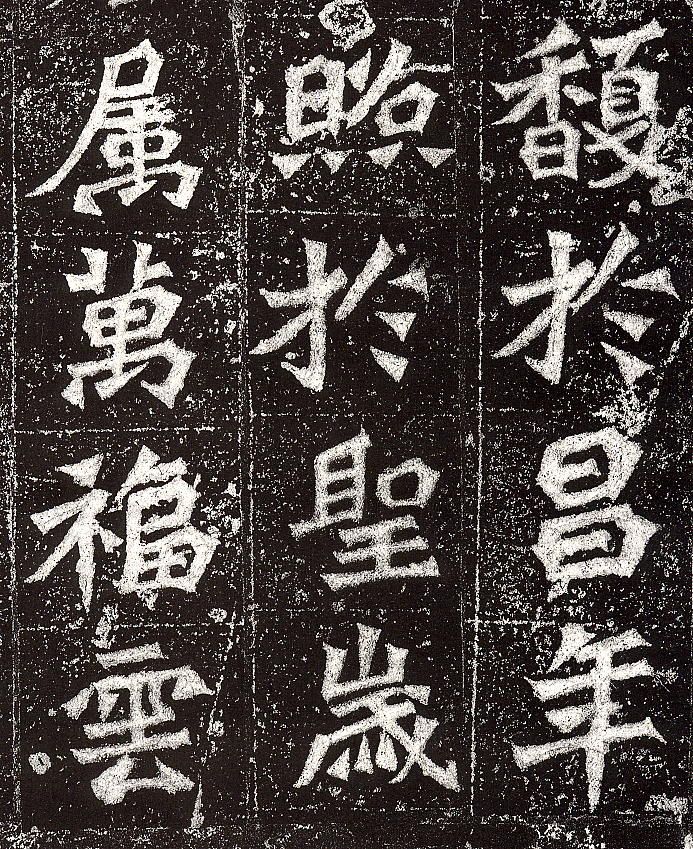 馥於昌年
照於聖歲
属萬福雲